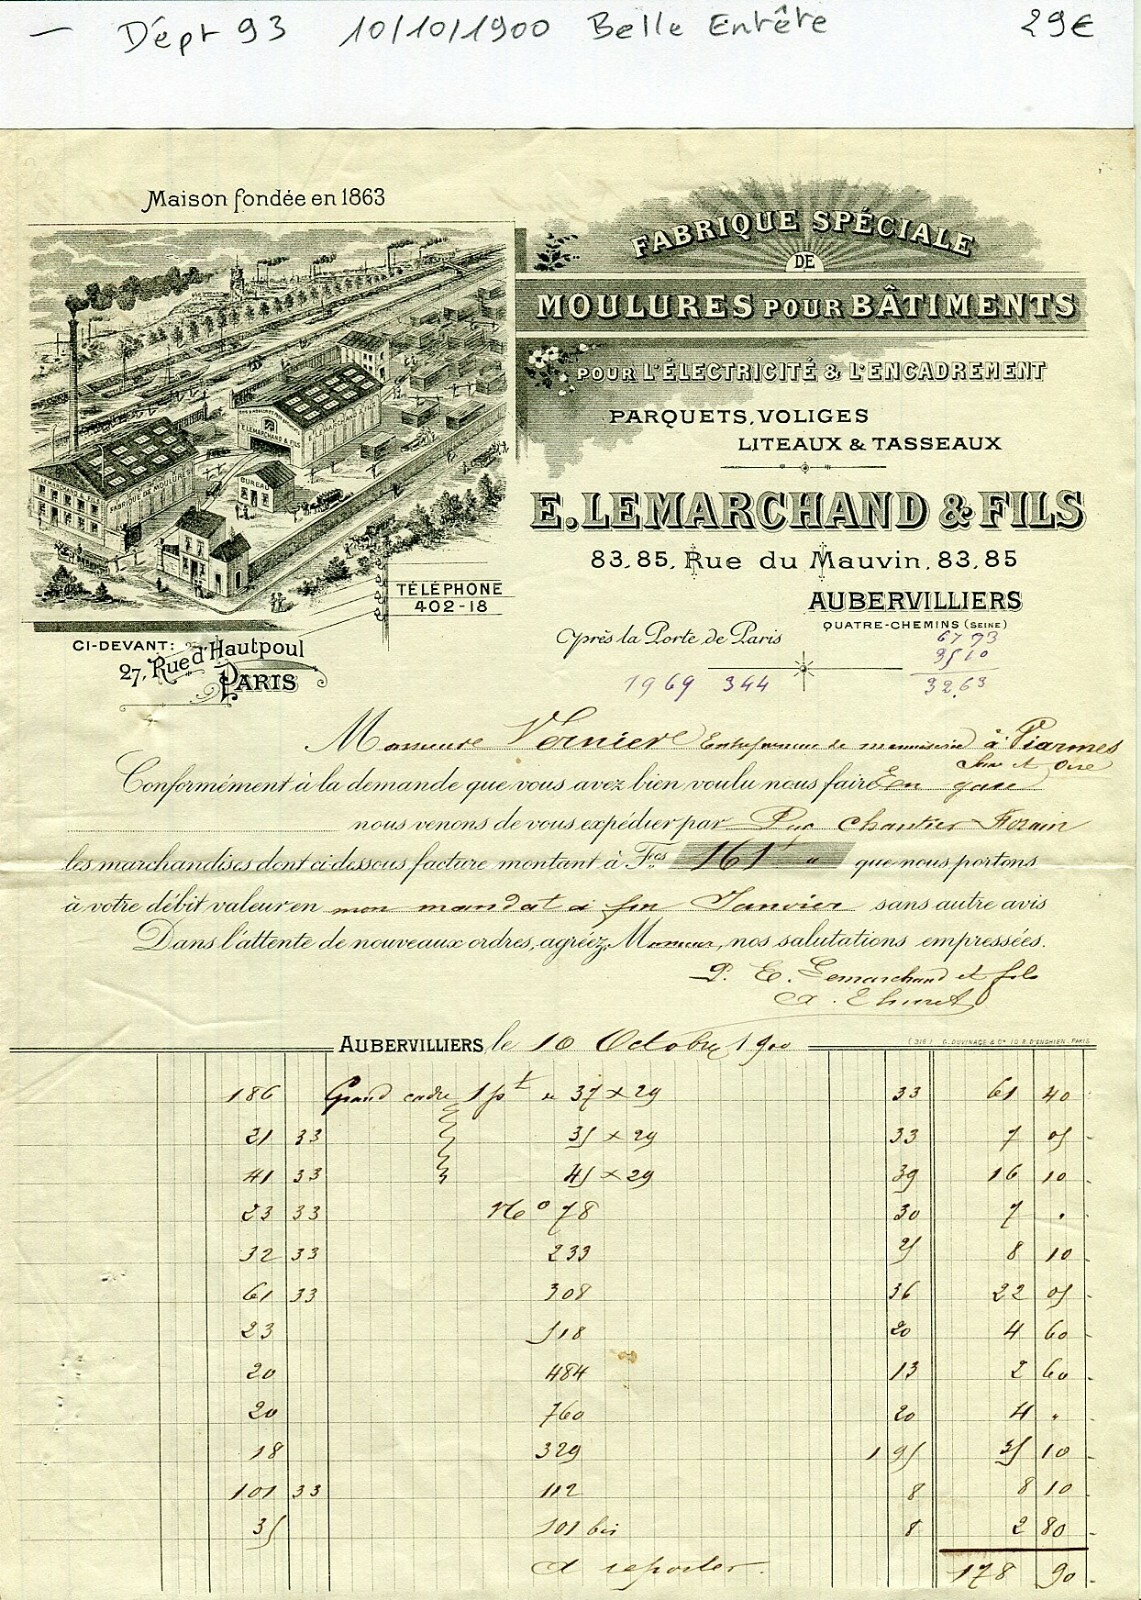 — Dépt 93 10/10/1900 Belle Entête 29€
Maison fondée en 1863
FABRIQUE SPÉCIALE
DE
MOULURES POUR BÂTIMENTS
POUR L'ÉLECTRICITÉ & L'ENCADREMENT
PARQUETS, VOLIGES
LITEAUX & TASSEAUX
E. LEMARCHAND & FILS
83, 85, Rue du Mauvin, 83, 85
AUBERVILLIERS
QUATRE-CHEMINS (SEINE)
(près la Porte de Paris
E. LEMARCHAND & FILS
FABRIQUE DE MOULURES
BUREAU
TÉLÉPHONE
402-18
CI-DEVANT:
27, Rue d'Hautpoul
PARIS
67 93
35 10
32,63
1969 344
Monsieur Vernier Entrepreneur de menuiserie à Viarmes
Seine et Oise
Conformément à la demande que vous avez bien voulu nous faire En gare
nous venons de vous expédier par Par chantier Forain
les marchandises dont ci-dessous facture montant à Fcs 161 " que nous portons
à votre débit valeur en mon mandat à fin Janvier sans autre avis
Dans l'attente de nouveaux ordres, agréez, Monsieur, nos salutations empressées.
P. E. Lemarchand et fils
AUBERVILLIERS le 10 Octobre 1900
(316) G. DUVINAGE & Cie 10 R. D'ENGHIEN, PARIS
186 Grand cadre 1 pt 37 x 29 33 61 40
21 33 35 x 29 33 7 05
41 33 45 x 29 39 16 10
23 33 No 78 30 7 .
32 33 233 25 8 10
61 33 308 36 22 05
23 518 20 4 60
20 484 13 2 60
20 760 20 4 .
18 329 1 95 35 10
101 33 112 8 8 10
35 101 bis 8 2 80
A reporter. 178 90